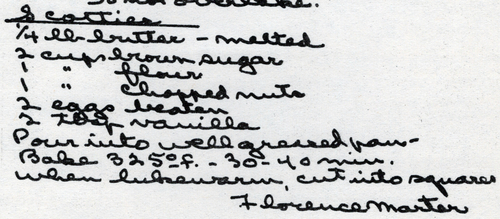 Do not overbake.
Scotties
1/4 lb. butter - melted
2 cups brown sugar
1 " flour
1 " chopped nuts
2 eggs beaten
2 tbsp vanilla
Pour into well greased pan -
Bake 325° f. - 30-40 min.
when lukewarm, cut into squares
Florence Marter